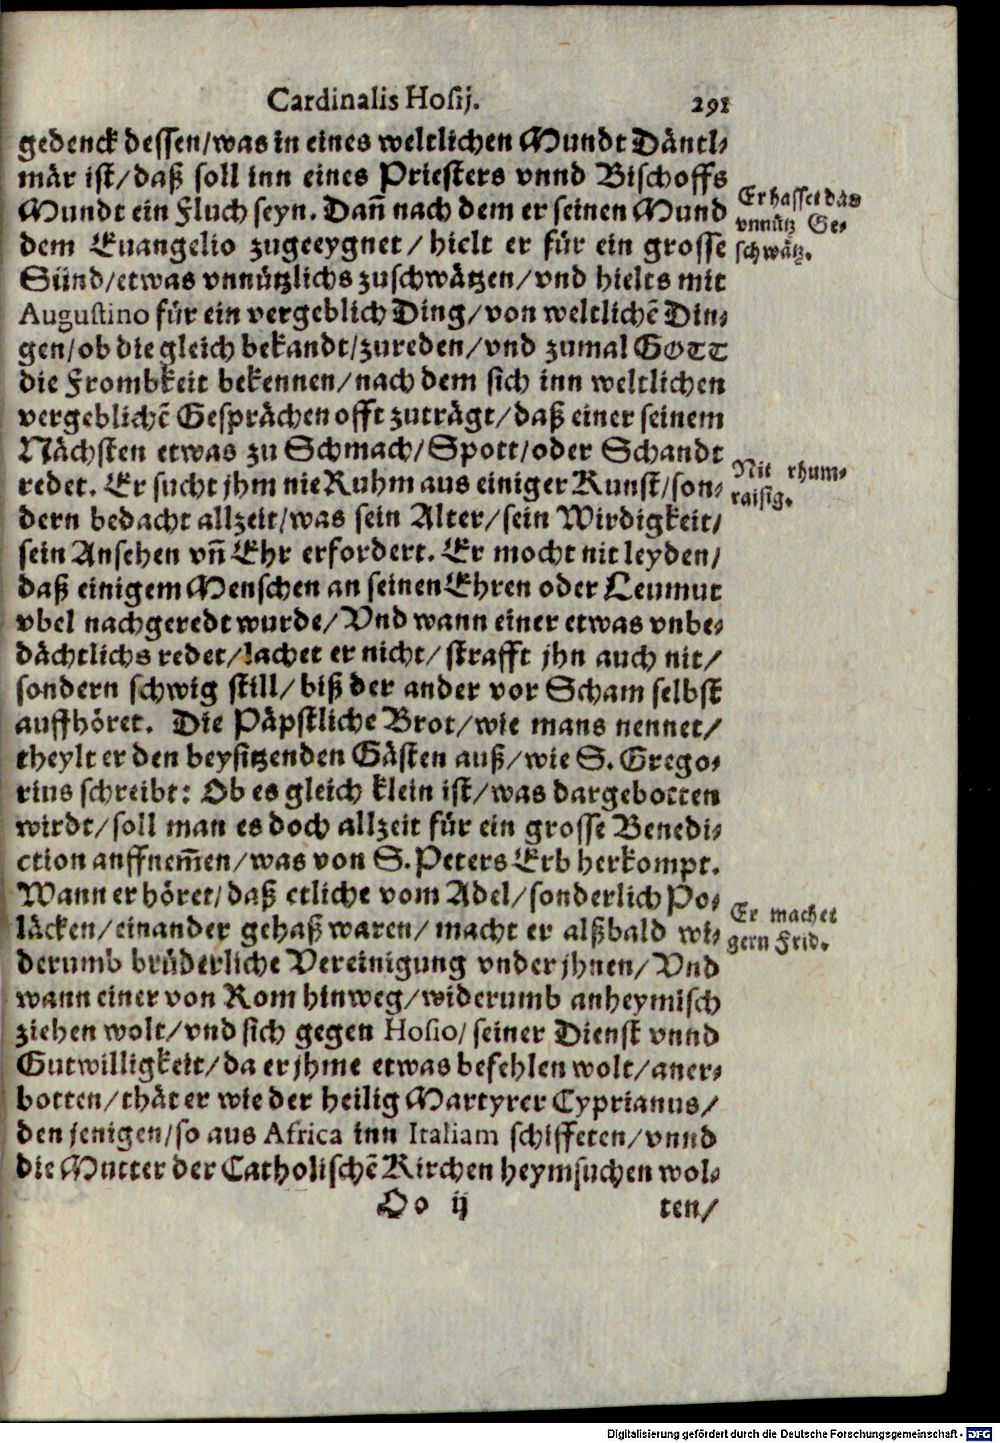 Cardinalis Hosij. 291
gedenck dessen/was in eines weltlichen Mundt Däntl⸗
mär ist/daß soll inn eines Priesters vnnd Bischoffs
Mundt ein Fluch seyn. Dañ nach dem er seinen Mund
dem Euangelio zugeeygnet/hielt er für ein grosse
Sünd/etwas vnnützlichs zuschwätzen/vnd hielts mit
Augustino für ein vergeblich Ding/von weltlichẽ Din⸗
gen/ob die gleich bekandt/zureden/vnd zumal GOTT
die Frombkeit bekennen/nach dem sich inn weltlichen
vergeblichẽ Gesprächen offt zuträgt/daß einer seinem
Nächsten etwas zu Schmach/Spott/oder Schandt
redet. Er sucht jhm nie Ruhm aus einiger Kunst/son⸗
dern bedacht allzeit/was sein Alter/sein Wirdigkeit/
sein Ansehen vñ Ehr erfordert. Er mocht nit leyden/
daß einigem Menschen an seinen Ehren oder Leumut
vbel nachgeredt wurde/Vnd wann einer etwas vnbe⸗
dächtlichs redet/lachet er nicht/strafft jhn auch nit/
sondern schwig still/biß der ander vor Scham selbst
auffhöret. Die Päpstliche Brot/wie mans nennet/
theylt er den beysitzenden Gästen auß/wie S. Grego⸗
rius schreibt: Ob es gleich klein ist/was dargebotten
wirdt/soll man es doch allzeit für ein grosse Benedi⸗
ction auffnem̃en/was von S. Peters Erb herkompt.
Wann er höret/daß etliche vom Adel/sonderlich Po⸗
läcken/einander gehaß waren/macht er alßbald wi⸗
derumb brüderliche Vereinigung vnder jhnen/Vnd
wann einer von Rom hinweg/widerumb anheymisch
ziehen wolt/vnd sich gegen Hosio/seiner Dienst vnnd
Gutwilligkeit/da er jhme etwas befehlen wolt/aner⸗
botten/thät er wie der heilig Martyrer Cyprianus/
den jenigen/so aus Africa inn Italiam schiffeten/vnnd
die Mutter der Catholischẽ Kirchen heymsuchen wol⸗
Oo ij ten/
Er hasset das
vnnütz Ge⸗
schwätz.
Nit rhum⸗
raisig.
Er machet
gern Frid.
Digitalisierung gefördert durch die Deutsche Forschungsgemeinschaft - DFG